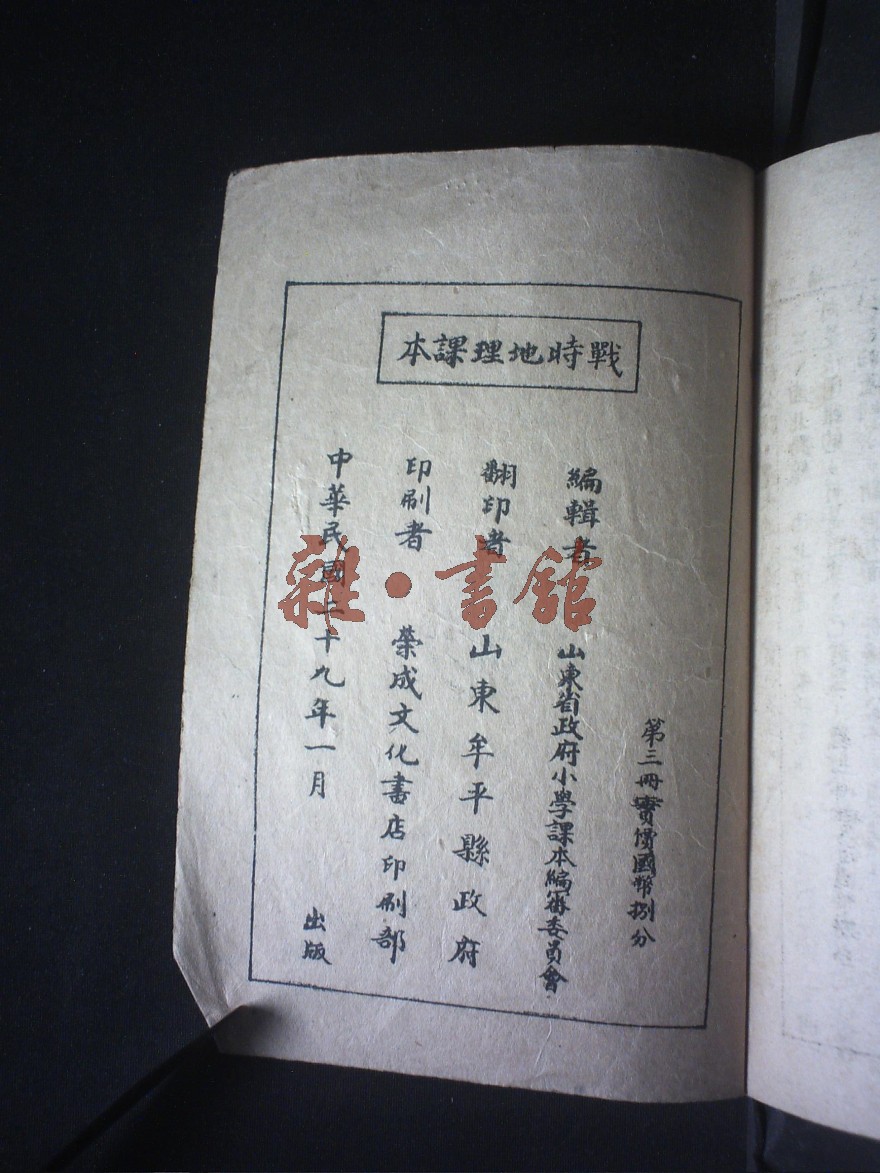 戰時地理課本
第三冊實價國幣捌分
編輯者 山東省政府小學課本編審委員會
翻印者 山東牟平縣政府
印刷者 榮成文化書店印刷部
中華民國二十九年一月 出版
雜·書館